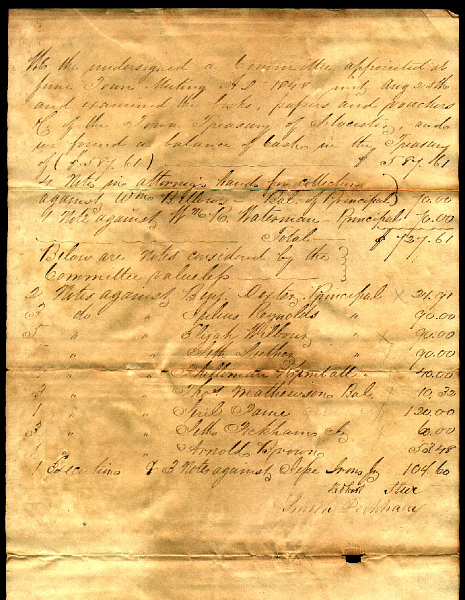 We the undersigned a Committee appointed at
June Town Meeting A D 1848 met Aug 25th
and examined the books, papers and vouchers
&c of the Town Treasury of Glocester, and
we found a balance of Cash in the Treasury
of ($587.61) $587.61
4 Notes in attorneys hands for collection
against Wm Bal. of Principal 70.00
1 Note against Wm H. Waterman Principal 70.00
Total $727.61
Below are Notes considered by the
Committee valueless
2 Notes against Benj. Dexter, Principal 24.91
3 do " Julius Reynolds " 90.00
5 " " Elijah Wilbour " 90.00
" " Seth Luther " 90.00
" " Kimball " 40.00
3 " " Thos Mathewson Bal. 10.32
1 " " Paine 120.00
3 " " Seth Peckham Jr 60.00
1 " " Arnold Brown 52.48
1 Execution & 3 Notes against Jesse Irons Jr 104.60
Steere
Smith Peckham